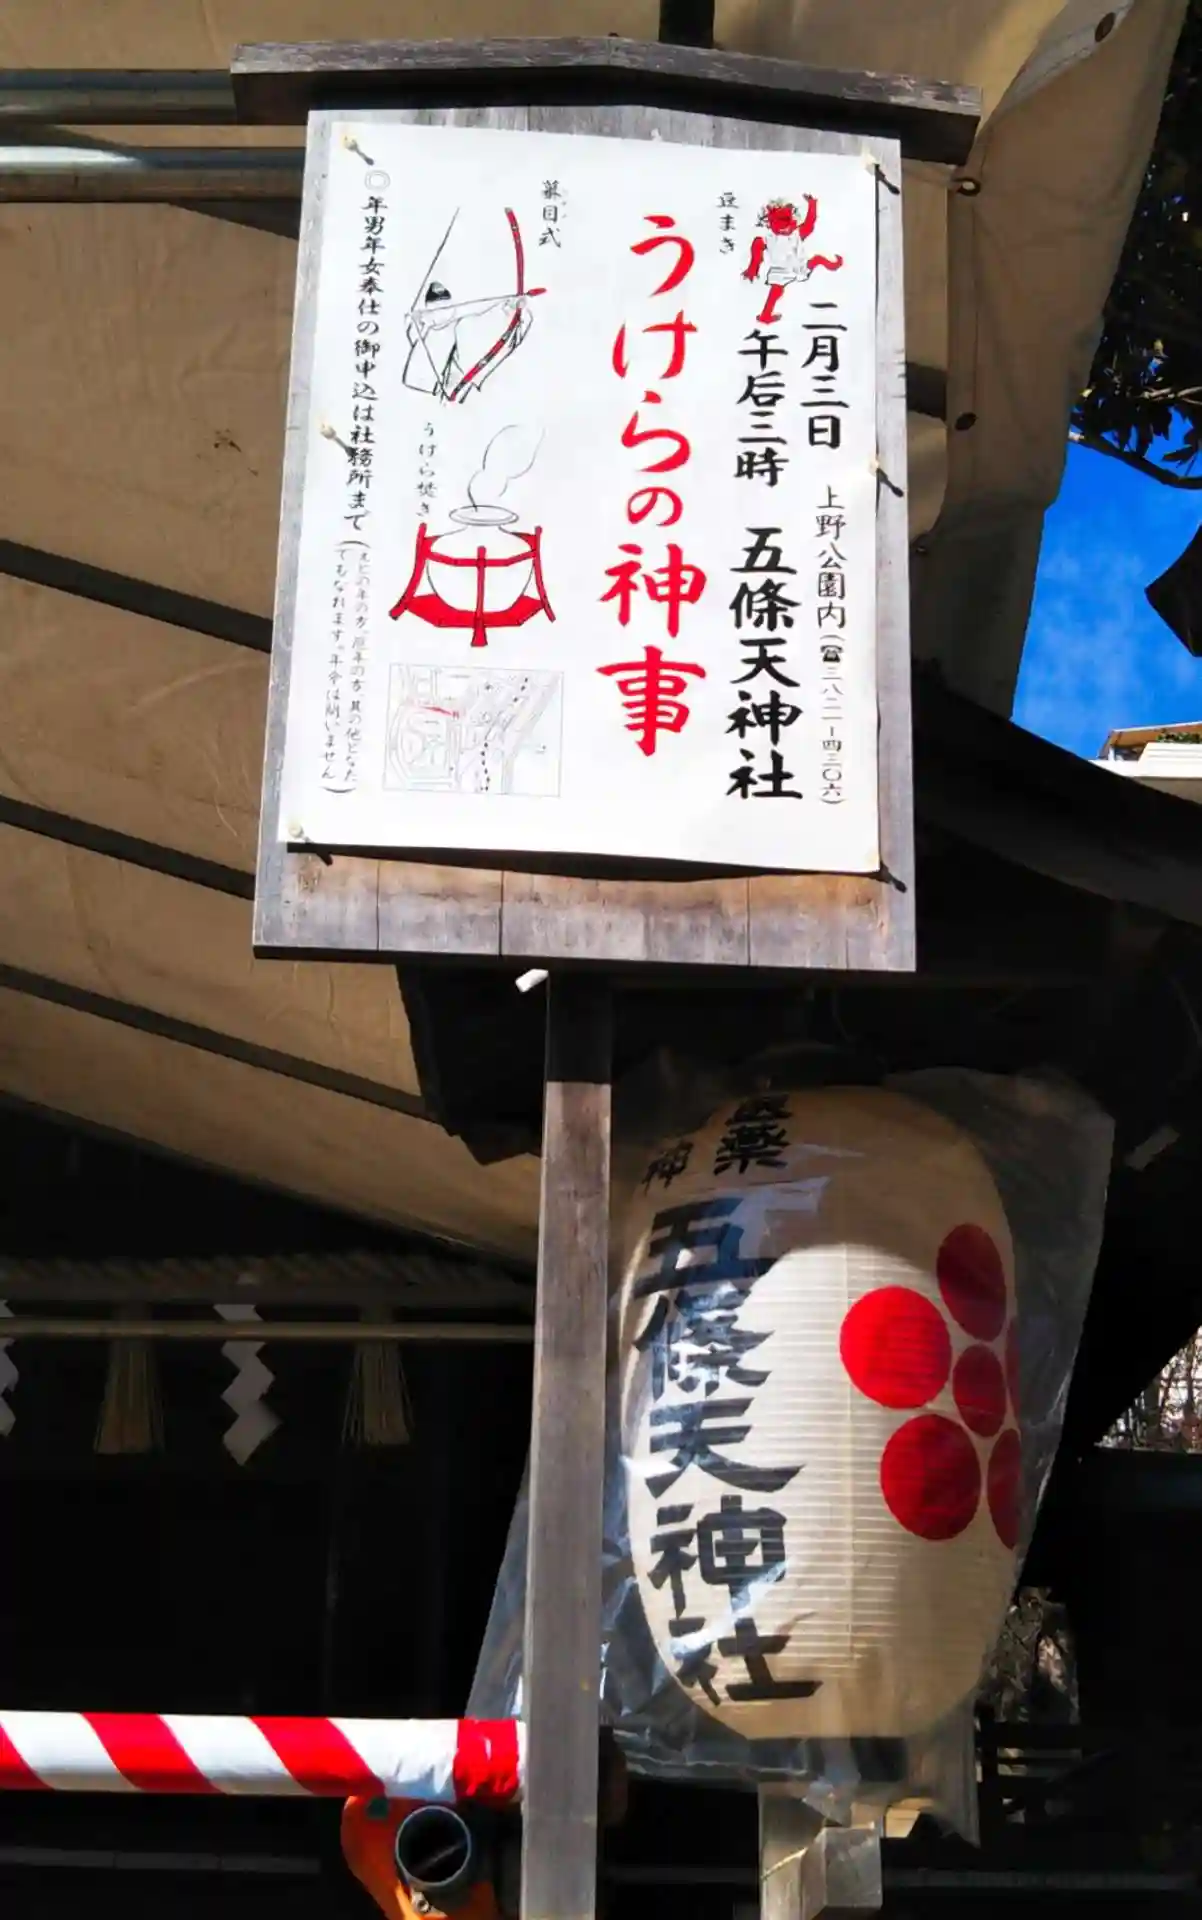 二月三日
午后三時
上野公園内(☎三八二一ー四三〇六)
五條天神社
豆まき
うけらの神事
蟇目式
うけら焚き
◎年男年女奉仕の御申込は社務所まで(えとの年の方、厄年の方、其の他どなたでもなれます。年令は問いません)
医薬
神
五條天神社